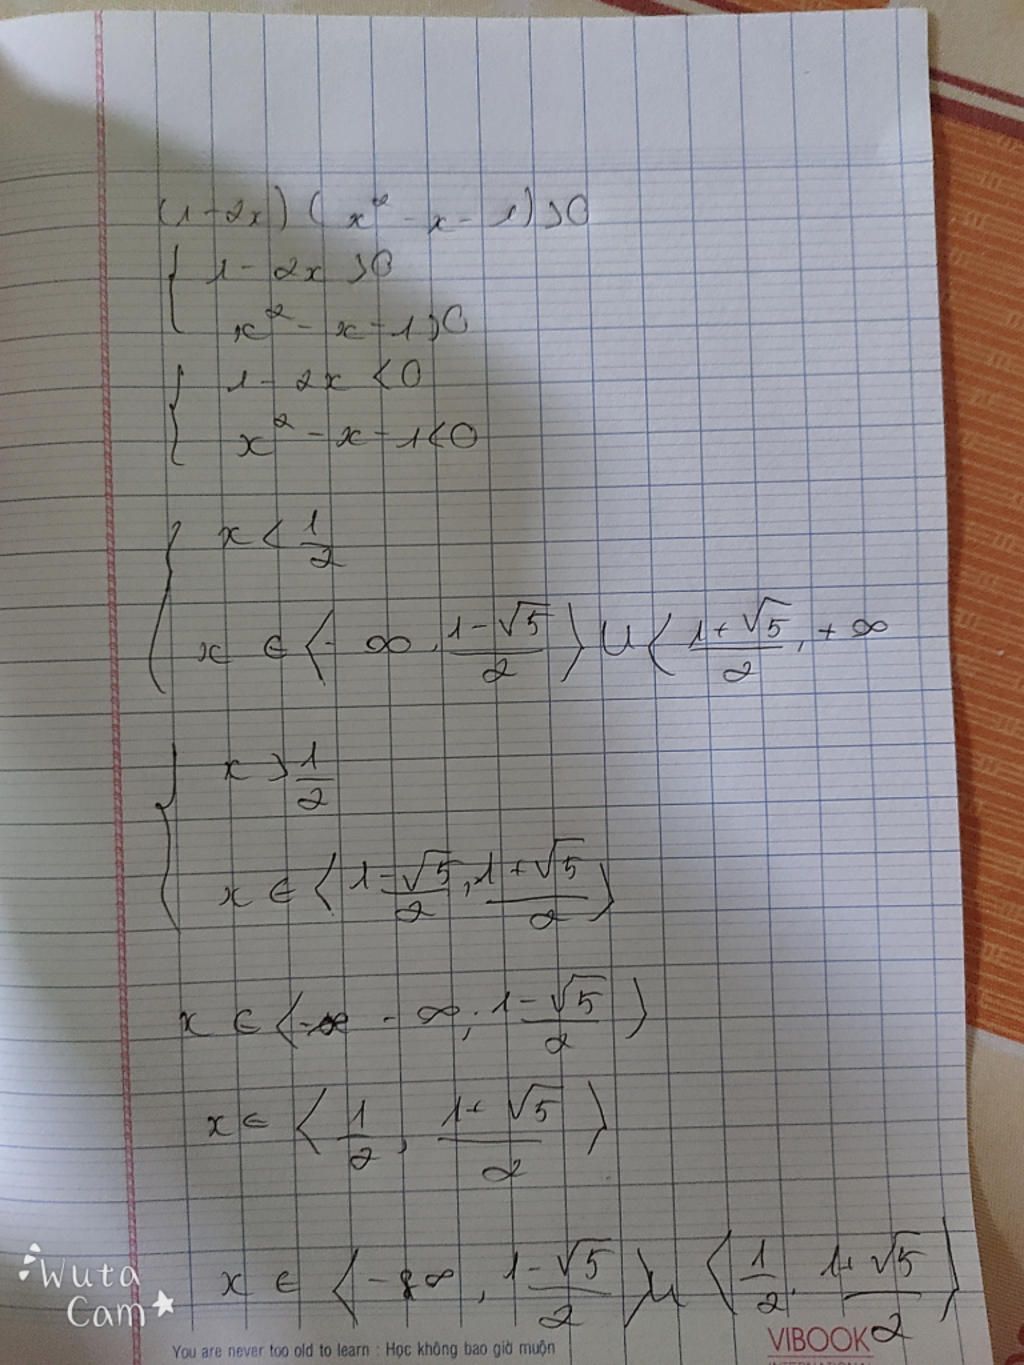 (1-2x) (x² - x - 1) > 0
{ 1 - 2x > 0
x² - x - 1 > 0
{ 1 - 2x < 0
x² - x - 1 < 0
{ x < 1/2
x ∈ ⟨- ∞, (1-√5)/2⟩ U ⟨(1+√5)/2, + ∞
{ x > 1/2
x ∈ ⟨(1-√5)/2, (1+√5)/2⟩
x ∈ ⟨- ∞; (1-√5)/2⟩
x ∈ ⟨1/2, (1+√5)/2⟩
x ∈ ⟨-∞, (1-√5)/2⟩ U ⟨1/2, (1+√5)/2⟩
Wuta
Cam
You are never too old to learn : Học không bao giờ muộn
VIBOOK
INTERNATIONAL